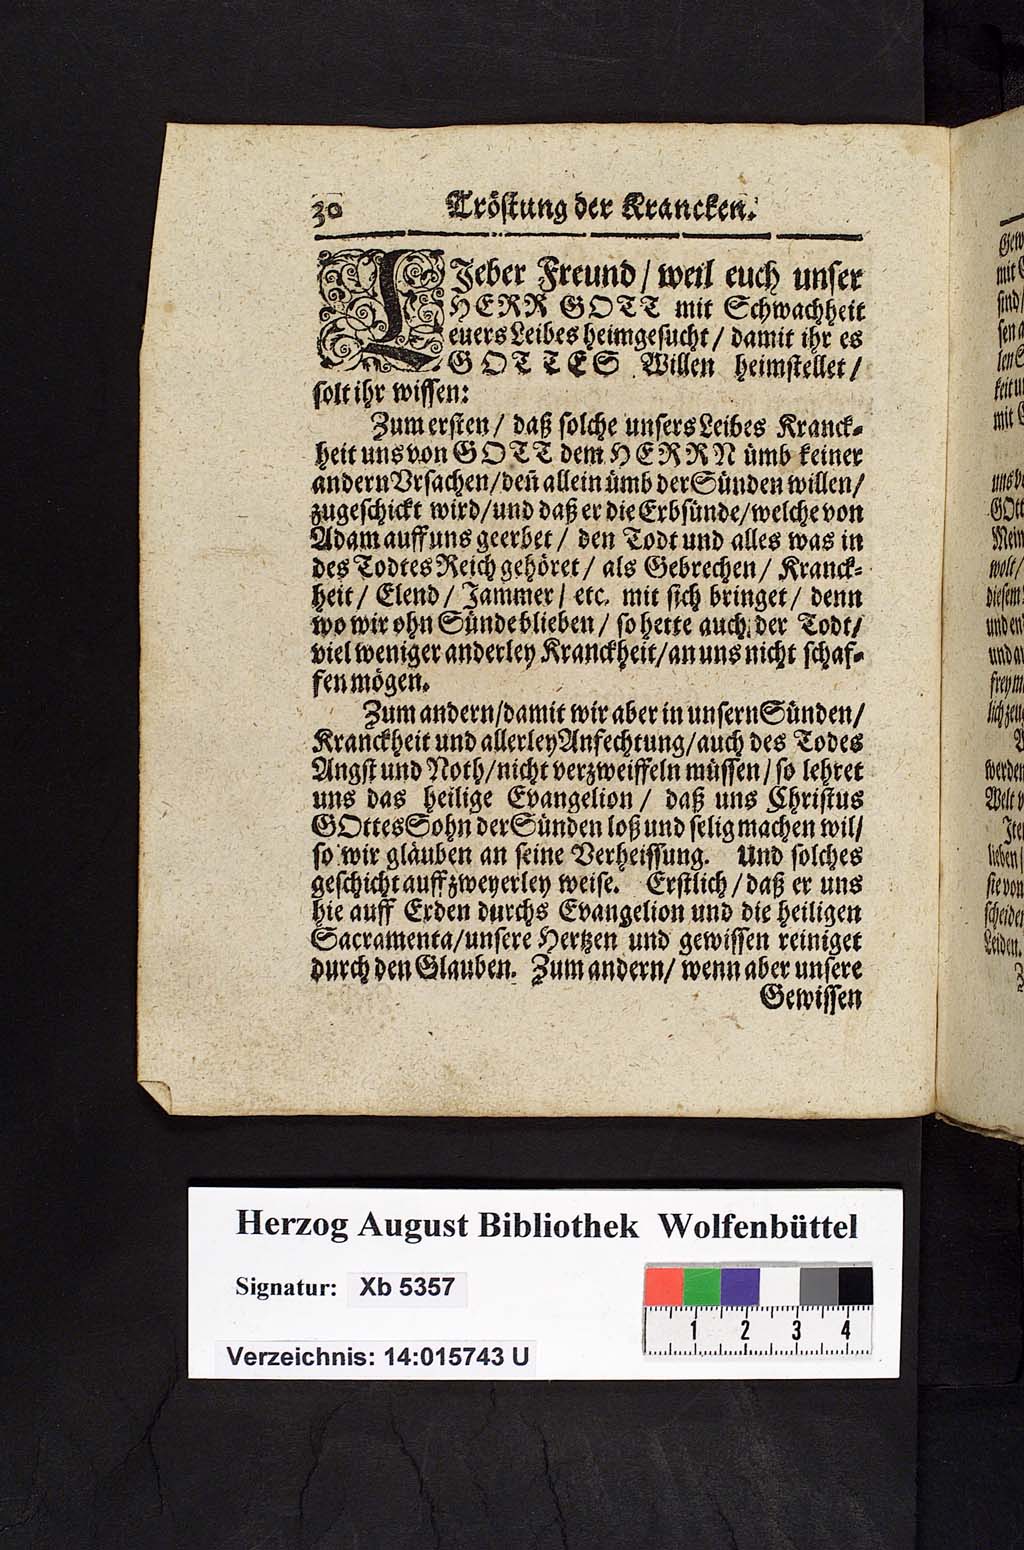 30 Tröstung der Krancken.
LIeber Freund / weil euch unser
HERR GOTT mit Schwachheit
euers Leibes heimgesucht / damit ihr es
GOTTES Willen heimstellet /
solt ihr wissen:
Zum ersten / daß solche unsers Leibes Kranck-
heit uns von GOTT dem HERRN ümb keiner
andern Vrsachen / deñ allein ümb der Sünden willen /
zugeschickt wird / und daß er die Erbsünde / welche von
Adam auff uns geerbet / den Todt und alles was in
des Todtes Reich gehöret / als Gebrechen / Kranck-
heit / Elend / Jammer / etc. mit sich bringet / denn
wo wir ohn Sünde blieben / so hette auch der Todt /
viel weniger anderley Kranckheit / an uns nicht schaf-
fen mögen.
Zum andern / damit wir aber in unsern Sünden /
Kranckheit und allerley Anfechtung / auch des Todes
Angst und Noth / nicht verzweiffeln müssen / so lehret
uns das heilige Evangelion / daß uns Christus
GOttes Sohn der Sünden loß und selig machen wil /
so wir gläuben an seine Verheissung. Und solches
geschicht auff zweyerley weise. Erstlich / daß er uns
hie auff Erden durchs Evangelion und die heiligen
Sacramenta / unsere Hertzen und gewissen reiniget
durch den Glauben. Zum andern / wenn aber unsere
Gewissen
Gew
mit
sind /
sen
len
keit u
mit
uns v
GOtt
Mein
wolt /
diesem
und en
und au
frey m
lich zeu
werden
Welt v
Ite
lieben
sie von
scheide
Leiden.
Z
Herzog August Bibliothek Wolfenbüttel
Signatur: Xb 5357
1 2 3 4
Verzeichnis: 14:015743 U